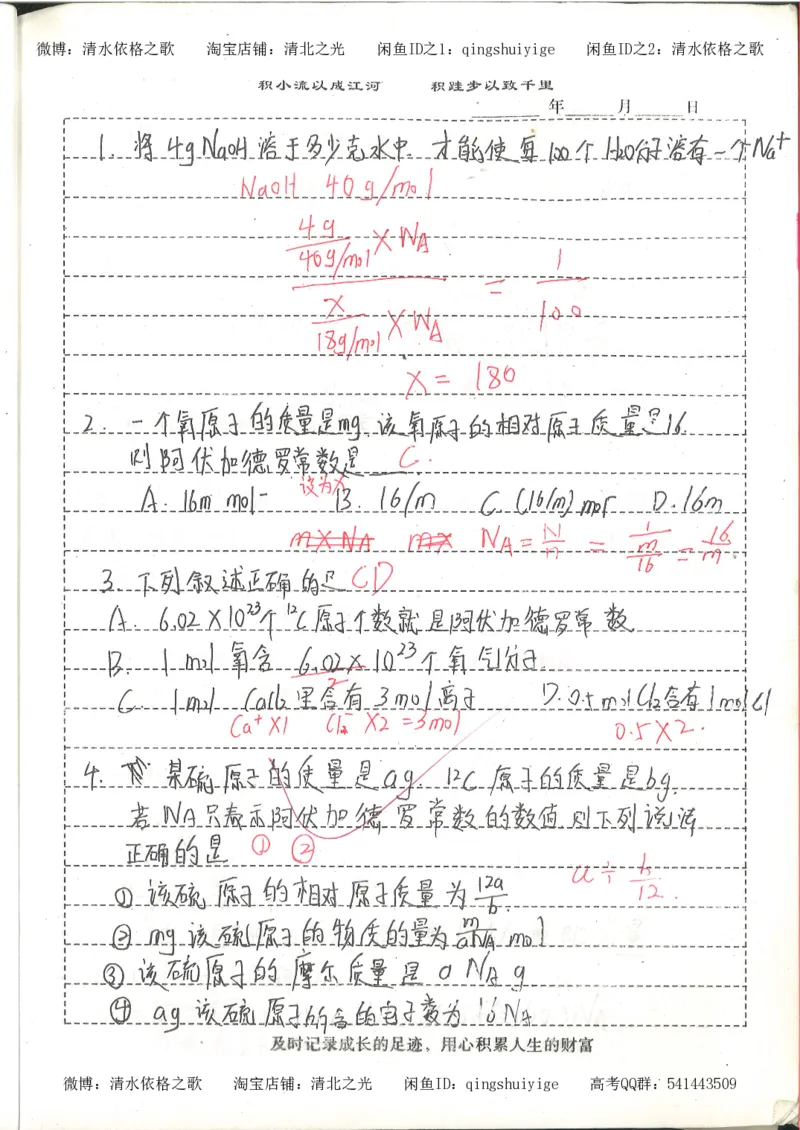 微博：清水依格之歌 淘宝店铺：清北之光 闲鱼ID之1：qingshuiyige 闲鱼ID之2：清水依格之歌
积小流以成江河 积跬步以致千里
年 月 日
1. 将4g NaOH 溶于多少克水中，才能使每100个H2O分子溶有一个Na+
NaOH 40g/mol
4g/40g/mol × NA
= 1/100
x/18g/mol × NA
x = 180
2. 一个氧原子的质量是mg，该氧原子的相对原子质量是16.
则阿伏加德罗常数是 C.
设为x
A. 16m mol⁻ B. 16/m C. (16/m) mol⁻ D. 16m
m×NA m× NA = N/n = 1/(m/16) = 16/m.
3. 下列叙述正确的是 CD
A. 6.02×10²³个¹²C原子个数就是阿伏加德罗常数
B. 1 mol 氧含 6.02×10²³个氧气分子.
2
C. 1mol CaCl2里含有3mol离子 D. 0.5 mol Cl2含有1mol Cl
Ca⁺×1 Cl₂⁻×2 =3mol 0.5×2.
4. 某硫原子的质量是ag. 12C原子的质量是bg.
若NA只表示阿伏加德罗常数的数值 则下列说法
正确的是 ① ②
a÷b/12.
① 该硫原子的相对原子质量为12a/b.
② mg该硫原子的物质的量为m/aNA mol
③ 该硫原子的摩尔质量是aNA g
④ ag该硫原子所含的电子数为16NA
及时记录成长的足迹，用心积累人生的财富
微博：清水依格之歌 淘宝店铺：清北之光 闲鱼ID：qingshuiyige 高考QQ群：541443509